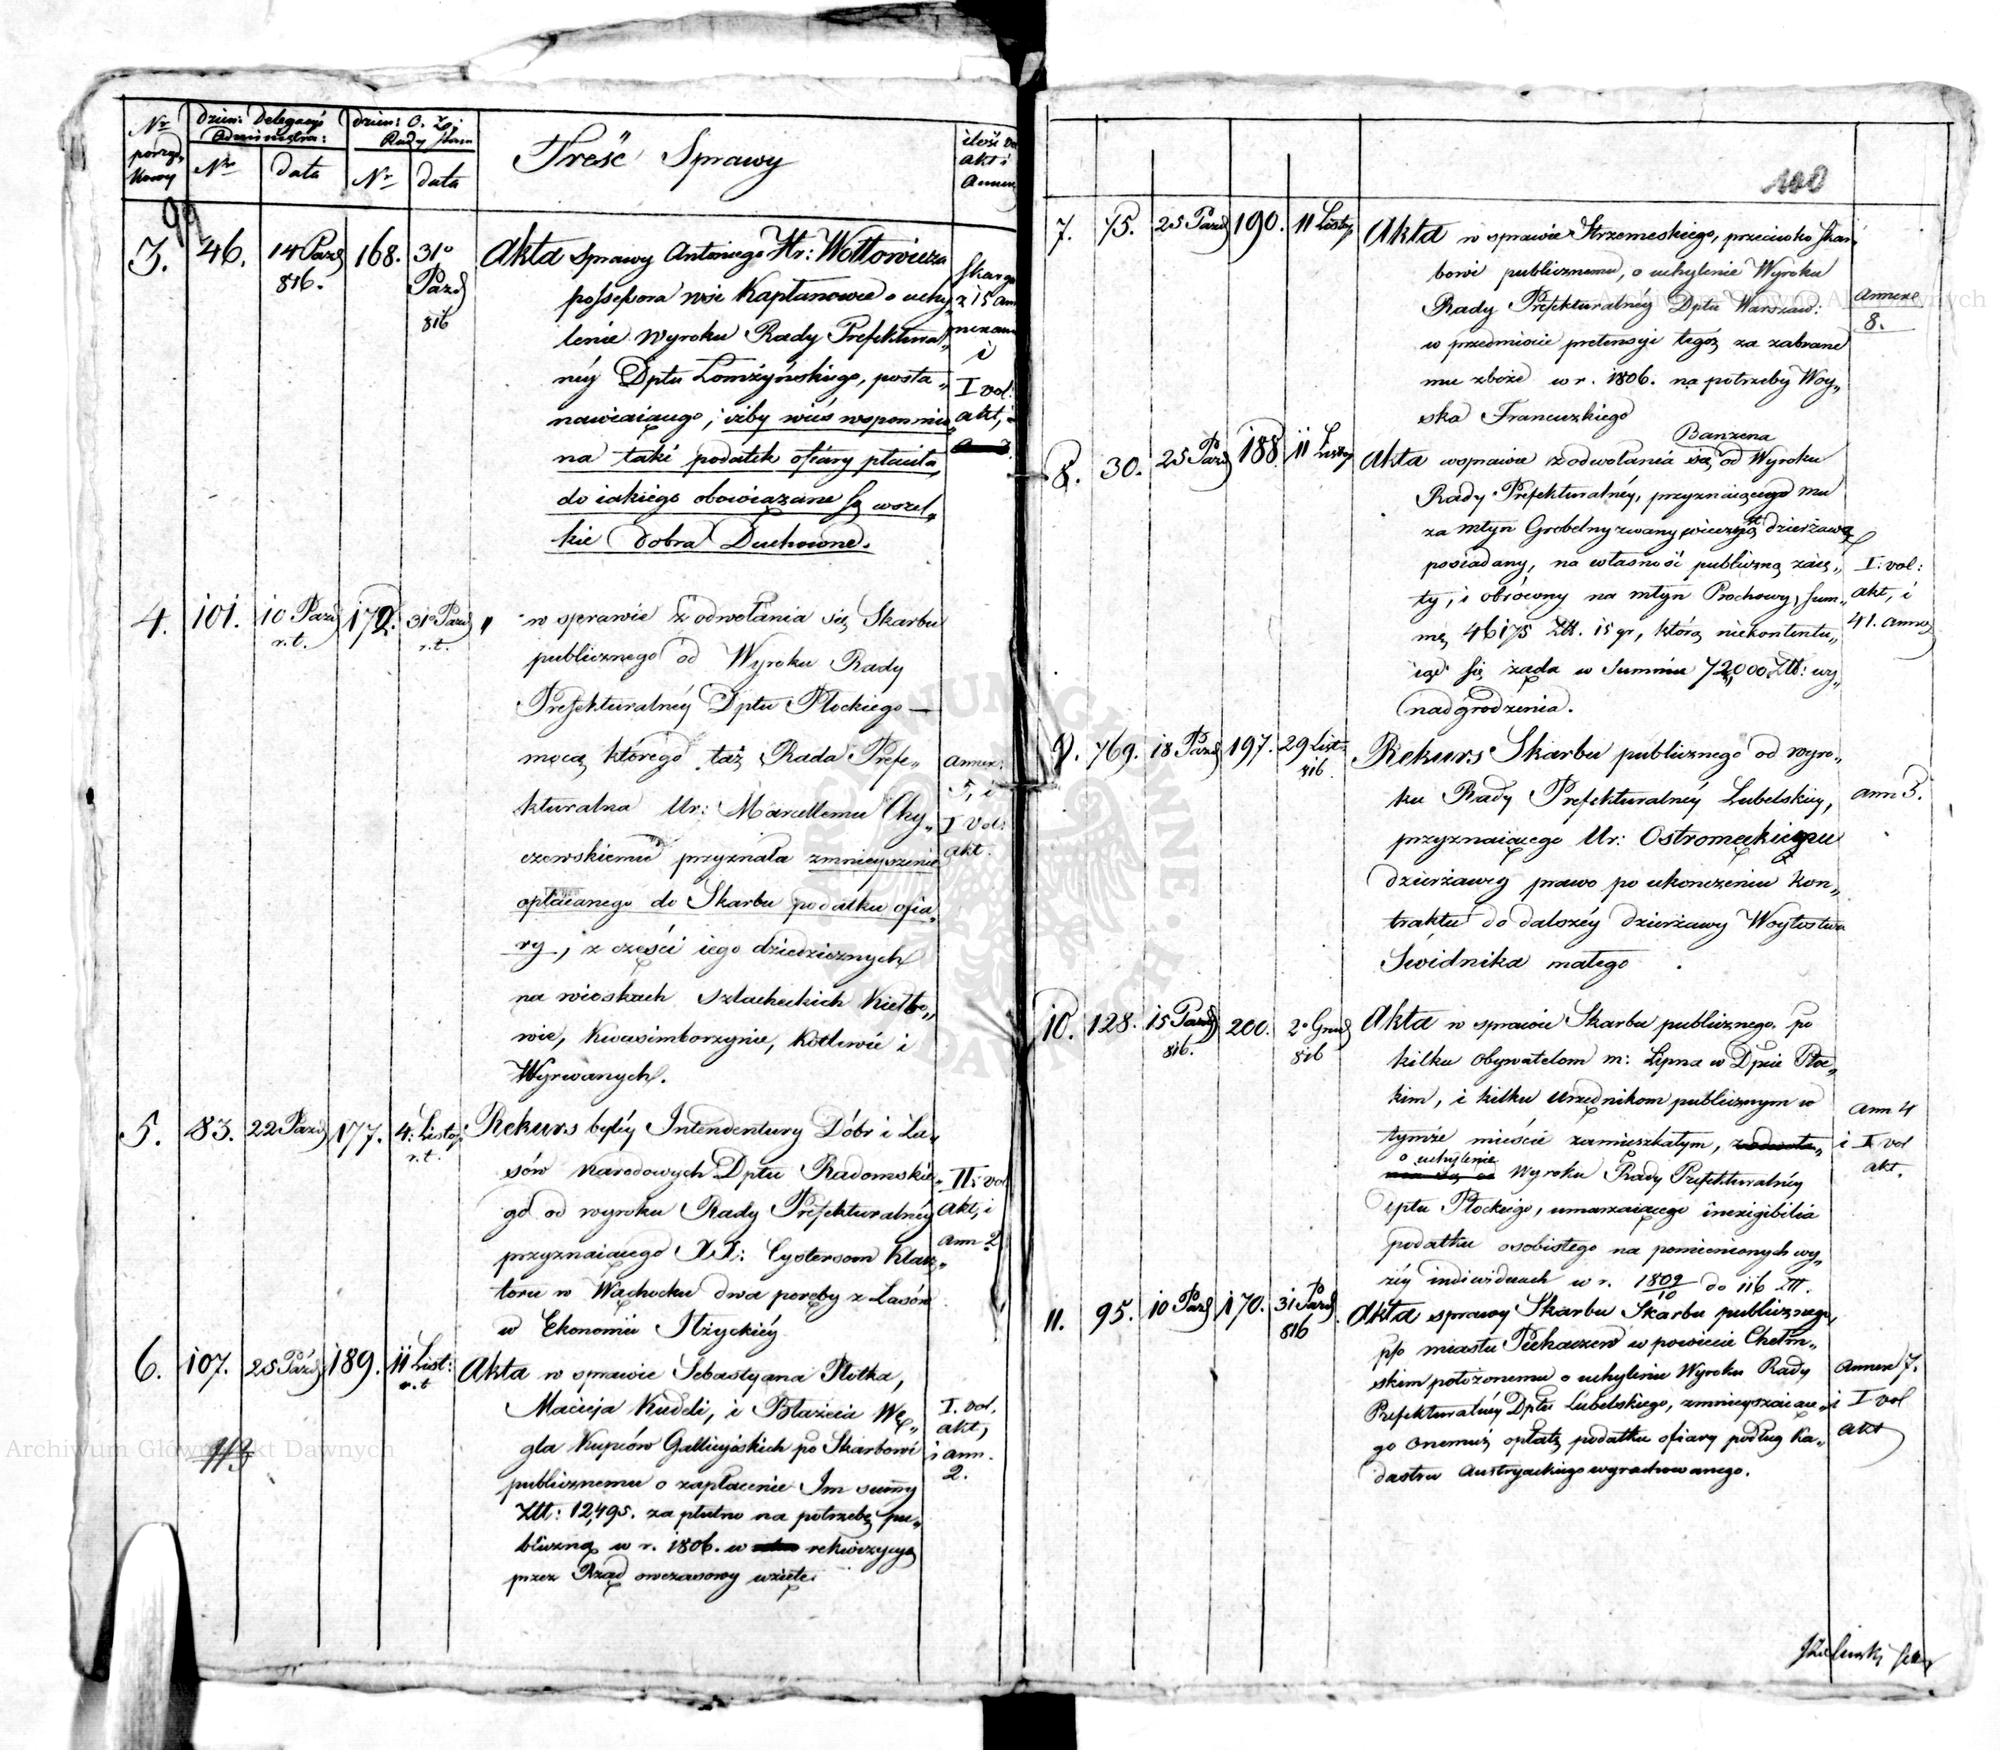 Nr porząd kowy
dzien: Delegacyi Administra:
Nr data
dzien: O. Z: Rady Stanu
Nr data
Treść Sprawy
ilość vol akt i Annex
99
3. 46. 14 Paźd 816. 168. 31° Paźd 816
Akta sprawy Antoniego Hr: Wołłowicza
possessora wsi Kapłanowce o uchy„
lenie wyroku Rady Prefektural„
néy Dptu Łomżyńskiego, posta„
nawiaiącego, iżby wieś wspomnio„
na taki podatek ofiary płaciła,
do iakiego obowiązane są wszel„
kie dobra Duchowne.
Skarga
z 15 ann
i
I vol:
akt, i
4. 101. 10 Paźd r.t. 172. 31° Paźd r.t.
" w sprawie z odwołania się Skarbu
publicznego od Wyroku Rady
Prefekturalnéy Dptu Płockiego —
mocą którego taż Rada Prefe„
kturalna Ur: Marcellemu Chy„
czewskiemu przyznała zmnieyszenie
opłacanego do Skarbu podatku ofia„
ry, z części iego dziedzicznych
na wioskach szlacheckich Kiełbo„
wie, Kwasimborzynie, Kotlewie i
Wyrwanych.
Annex:
5, i
I Vol:
akt.
5. 83. 22 Paźd 177. 4. Listop r.t.
Rekurs byłéy Intendentury Dóbr i La„
sów Narodowych Dptu Radomskie„
go od wyroku Rady Prefekturalnéy
przyznaiącego XX: Cystersom Klasz„
toru w Wąchocku dwa poręby z Lasów
w Ekonomii Iłżyckiéy
II: vol
akt, i
ann 2
6. 107. 25 Paźd 189. 11 List: r.t
Akta w sprawie Sebastyana Płotka,
Macieja Kudeli, i Błażeia Wę„
gla Kupców Gallicyiskich po Skarbowi
publicznemu o zapłacenie Im summy
Złt: 12,495. za płutno na potrzebę pu„
bliczną w r. 1806. w rekwizycyą
przez Rząd owczasowy wzięte.
I. vol.
akt,
i ann.
2.
113
100
7. 75. 25 Paźd 190. 11 Listop
Akta w sprawie Strzemeskiego, przeciwko Skar„
bowi publicznemu, o uchylenie Wyroku
Rady Prefekturalnéy Dptu Warszaw:
w przedmiocie pretensyi tegoż za zabrane
mu zboże w r. 1806. na potrzeby Woy„
ska Francuzkiego
Annexe
8.
8. 30. 25 Paźd 188 11 Listop
Banzena
Akta w sprawie z odwołania się od Wyroku
Rady Prefekturalnéy, przyznaiącego mu
za młyn Grobelny zwany wieczystą dzierżawą
posiadany, na własność publiczną zaię„
ty, i obrócony na młyn Prochowy, sum„
mę 46175 Złt. 15 gr, którą niekontentu„
iąc się żąda w Summie 72,000 Złt: wy„
nadgrodzenia.
I: vol:
akt, i
41. annex
9. 769. 18 Paźd 197. 29 List: 816.
Rekurs Skarbu publicznego od wyro„
ku Rady Prefekturalnéy Lubelskiey,
przyznaiącego Ur: Ostromęckiemu
dzierżawcy prawo po ukończeniu kon„
traktu do dalszéy dzierżawy Woytostwa
Swidnika małego.
ann 3.
10. 128. 15 Paźd 816. 200. 2° Grud 816
Akta w sprawie Skarbu publicznego. po
kilku obywatelom m: Lipna w Dpcie Płoc„
kim, i kilku urzędnikom publicznym w
tymże mieście zamieszkałym,
o uchylenie
Wyroku Rady Prefekturalnéy
Dptu Płockiego, umarzaiącego inexigibilia
podatku osobistego na pomienionych wy„
żéy individuach w r. 1809/10 do 116 złt.
ann 4
i I vol
akt.
11. 95. 10 Paźd 170. 31 Paźd 816
Akta sprawy Skarbu Skarbu publicznego,
p/o miastu Puchaczew w powiecie Chełm„
skim położonemu o uchylenie Wyroku Rady
Prefekturalnéy Dptu Lubelskiego, zmnieyszaiące„
go onemuż opłatę podatku ofiary podług Ka„
dastru Austryackiego wyrachowanego.
Annexe 7.
i I vol
akt
Archiwum Główne Akt Dawnych
Archiwum Główne Akt Dawnych
ARCHIWUM GŁÓWNE AKT DAWNYCH